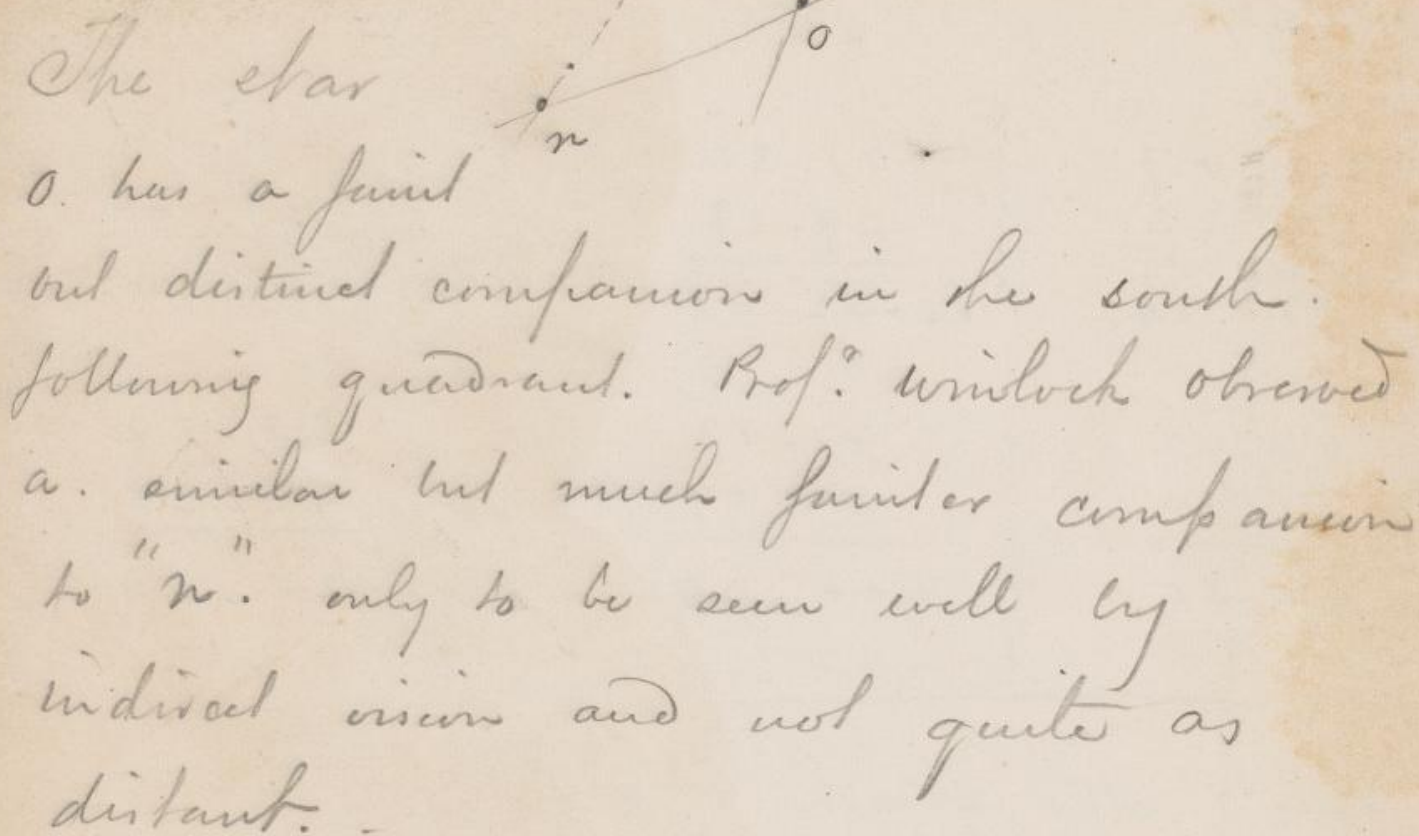 o
The star
n
o. has a faint
but distinct companion in the south.
following quadrant. Prof. Winlock observed
a. similar but much fainter companion
to "n". only to be seen well by
indirect vision and not quite as
distant.